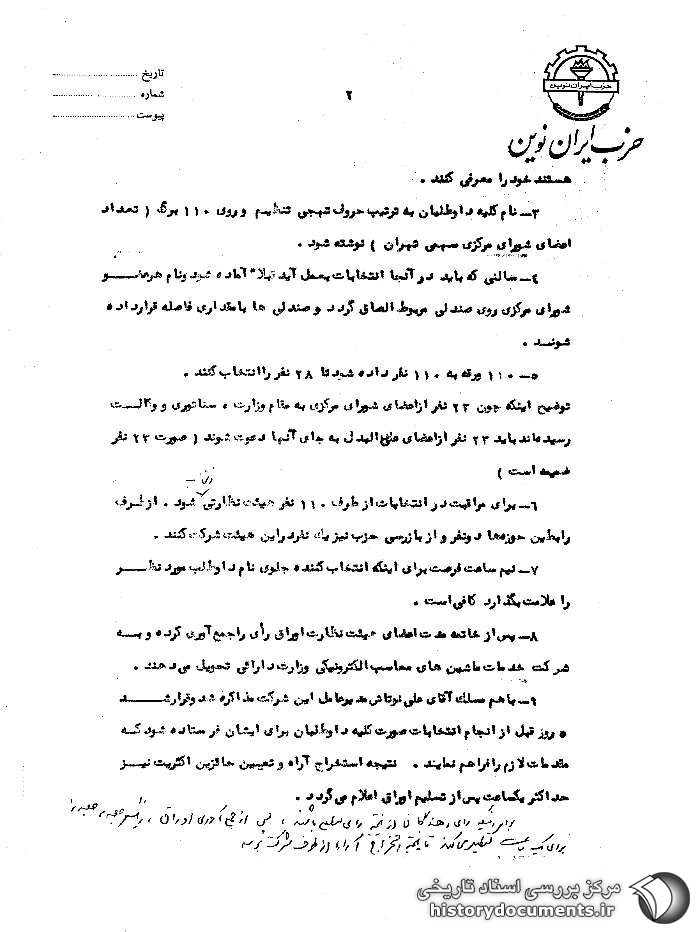 تاریخ
شماره
پیوست
۲
حزب ایران نوین
حزب ایران نوین
هستند خود را معرفی کنند .
۳ــ نام کلیه داوطلبان به ترتیب حروف تهجی تنظیم و روی ۱۱۰ برگ ( تعداد
اعضای شورای مرکزی سهمی تهران ) نوشته شود .
۴ــ سالنی که باید در آنجا انتخابات بعمل آید قبلا" آماده شود ونام هر عضو
شورای مرکزی روی صندلی مربوط الصاق گردد و صندلی ها با مقداری فاصله قرار داده
شوند .
۵ــ ۱۱۰ ورقه به ۱۱۰ نفر داده شود تا ۲۸ نفر را انتخاب کنند .
توضیح اینکه چون ۲۳ نفر از اعضای شورای مرکزی به مقام وزارت ، سناتوری و وکالت
رسیده‌اند باید ۲۳ نفر از اعضای علی البدل به جای آنها دعوت شوند ( صورت ۲۳ نفر
ضمیمه است )
۶ــ برای مراقبت در انتخابات از طرف ۱۱۰ نفر هیئت نظارتی انتخاب شود . از طرف
رابطین حوزه‌ها دونفر و از بازرسی حزب نیز یک نفر در این هیئت شرکت کنند .
۷ــ نیم ساعت فرصت برای اینکه انتخاب کننده جلوی نام داوطلب مورد نظر
را علامت بگذارد کافی است .
۸ــ پس از خاتمه مدت اعضای هیئت نظارت اوراق رأی را جمع آوری کرده و به
شرکت خدمات ماشین های محاسب الکترونیکی وزارت دارائی تحویل می دهند .
۹ــ با هم مسلک آقای علی نوتاش مدیرعامل این شرکت مذاکره شد وقرار شد
۵ روز قبل از انجام انتخابات صورت کلیه داوطلبان برای ایشان فرستاده شود که
مقدمات لازم را فراهم نمایند . نتیجه استخراج آراء و تعیین حائزین اکثریت نیز
حداکثر یکساعت پس از تسلیم اوراق اعلام می گردد .
برای اینکه رای دهندگان از نتیجه رای مطلع باشند ، پس از جمع آوری اوراق ، رئیس جلسه ، جلسه را
برای یک ساعت تعطیل می کند تا نتیجه استخراج آراء از طرف شرکت برسد
مرکز بررسی اسناد تاریخی
historydocuments.ir